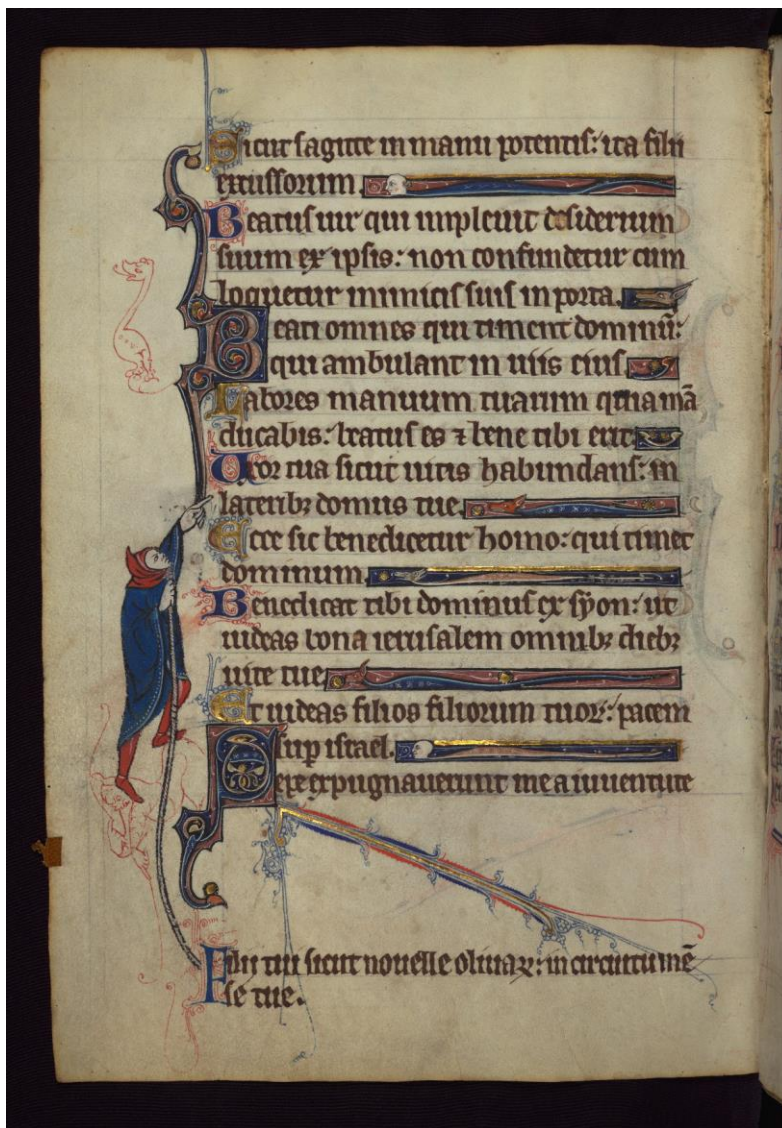 Sicut sagitte in manu potentis: ita filii
excussorum.
Beatus uir qui impleuit desiderium
suum ex ipsis: non confundetur cum
loquetur inimicis suis in porta.
Beati omnes qui timent dominū:
qui ambulant in uiis eius.
Labores manuum tuarum quia mā
ducabis: beatus es ⁊ bene tibi erit.
Uxor tua sicut uitis habundans: in
lateribꝫ domus tue.
Ecce sic benedicetur homo: qui timet
dominum.
Benedicat tibi dominus ex syon: ut
uideas bona ierusalem omnibꝫ diebꝫ
uite tue.
Et uideas filios filiorum tuoꝝ: pacem
sup israel.
Sepe expugnauerunt me a iuuentute
Filii tui sicut nouelle oliuaꝝ: in circuitu mē
se tue.